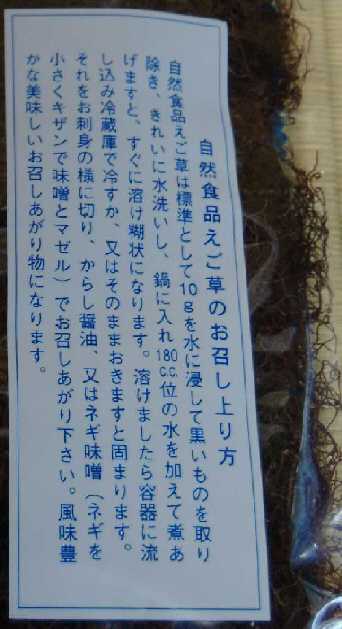 自然食品えご草のお召し上り方
自然食品えご草は標準として10gを水に浸して黒いものを取り
除き、きれいに水洗いし、鍋に入れ180c.c.位の水を加えて煮あ
げますと、すぐに溶け糊状になります。溶けましたら容器に流
し込み冷蔵庫で冷すか、又はそのままおきますと固まります。
それをお刺身の様に切り、からし醤油、又はネギ味噌（ネギを
小さくキザンで味噌とマゼル）でお召しあがり下さい。風味豊
かな美味しいお召しあがり物になります。